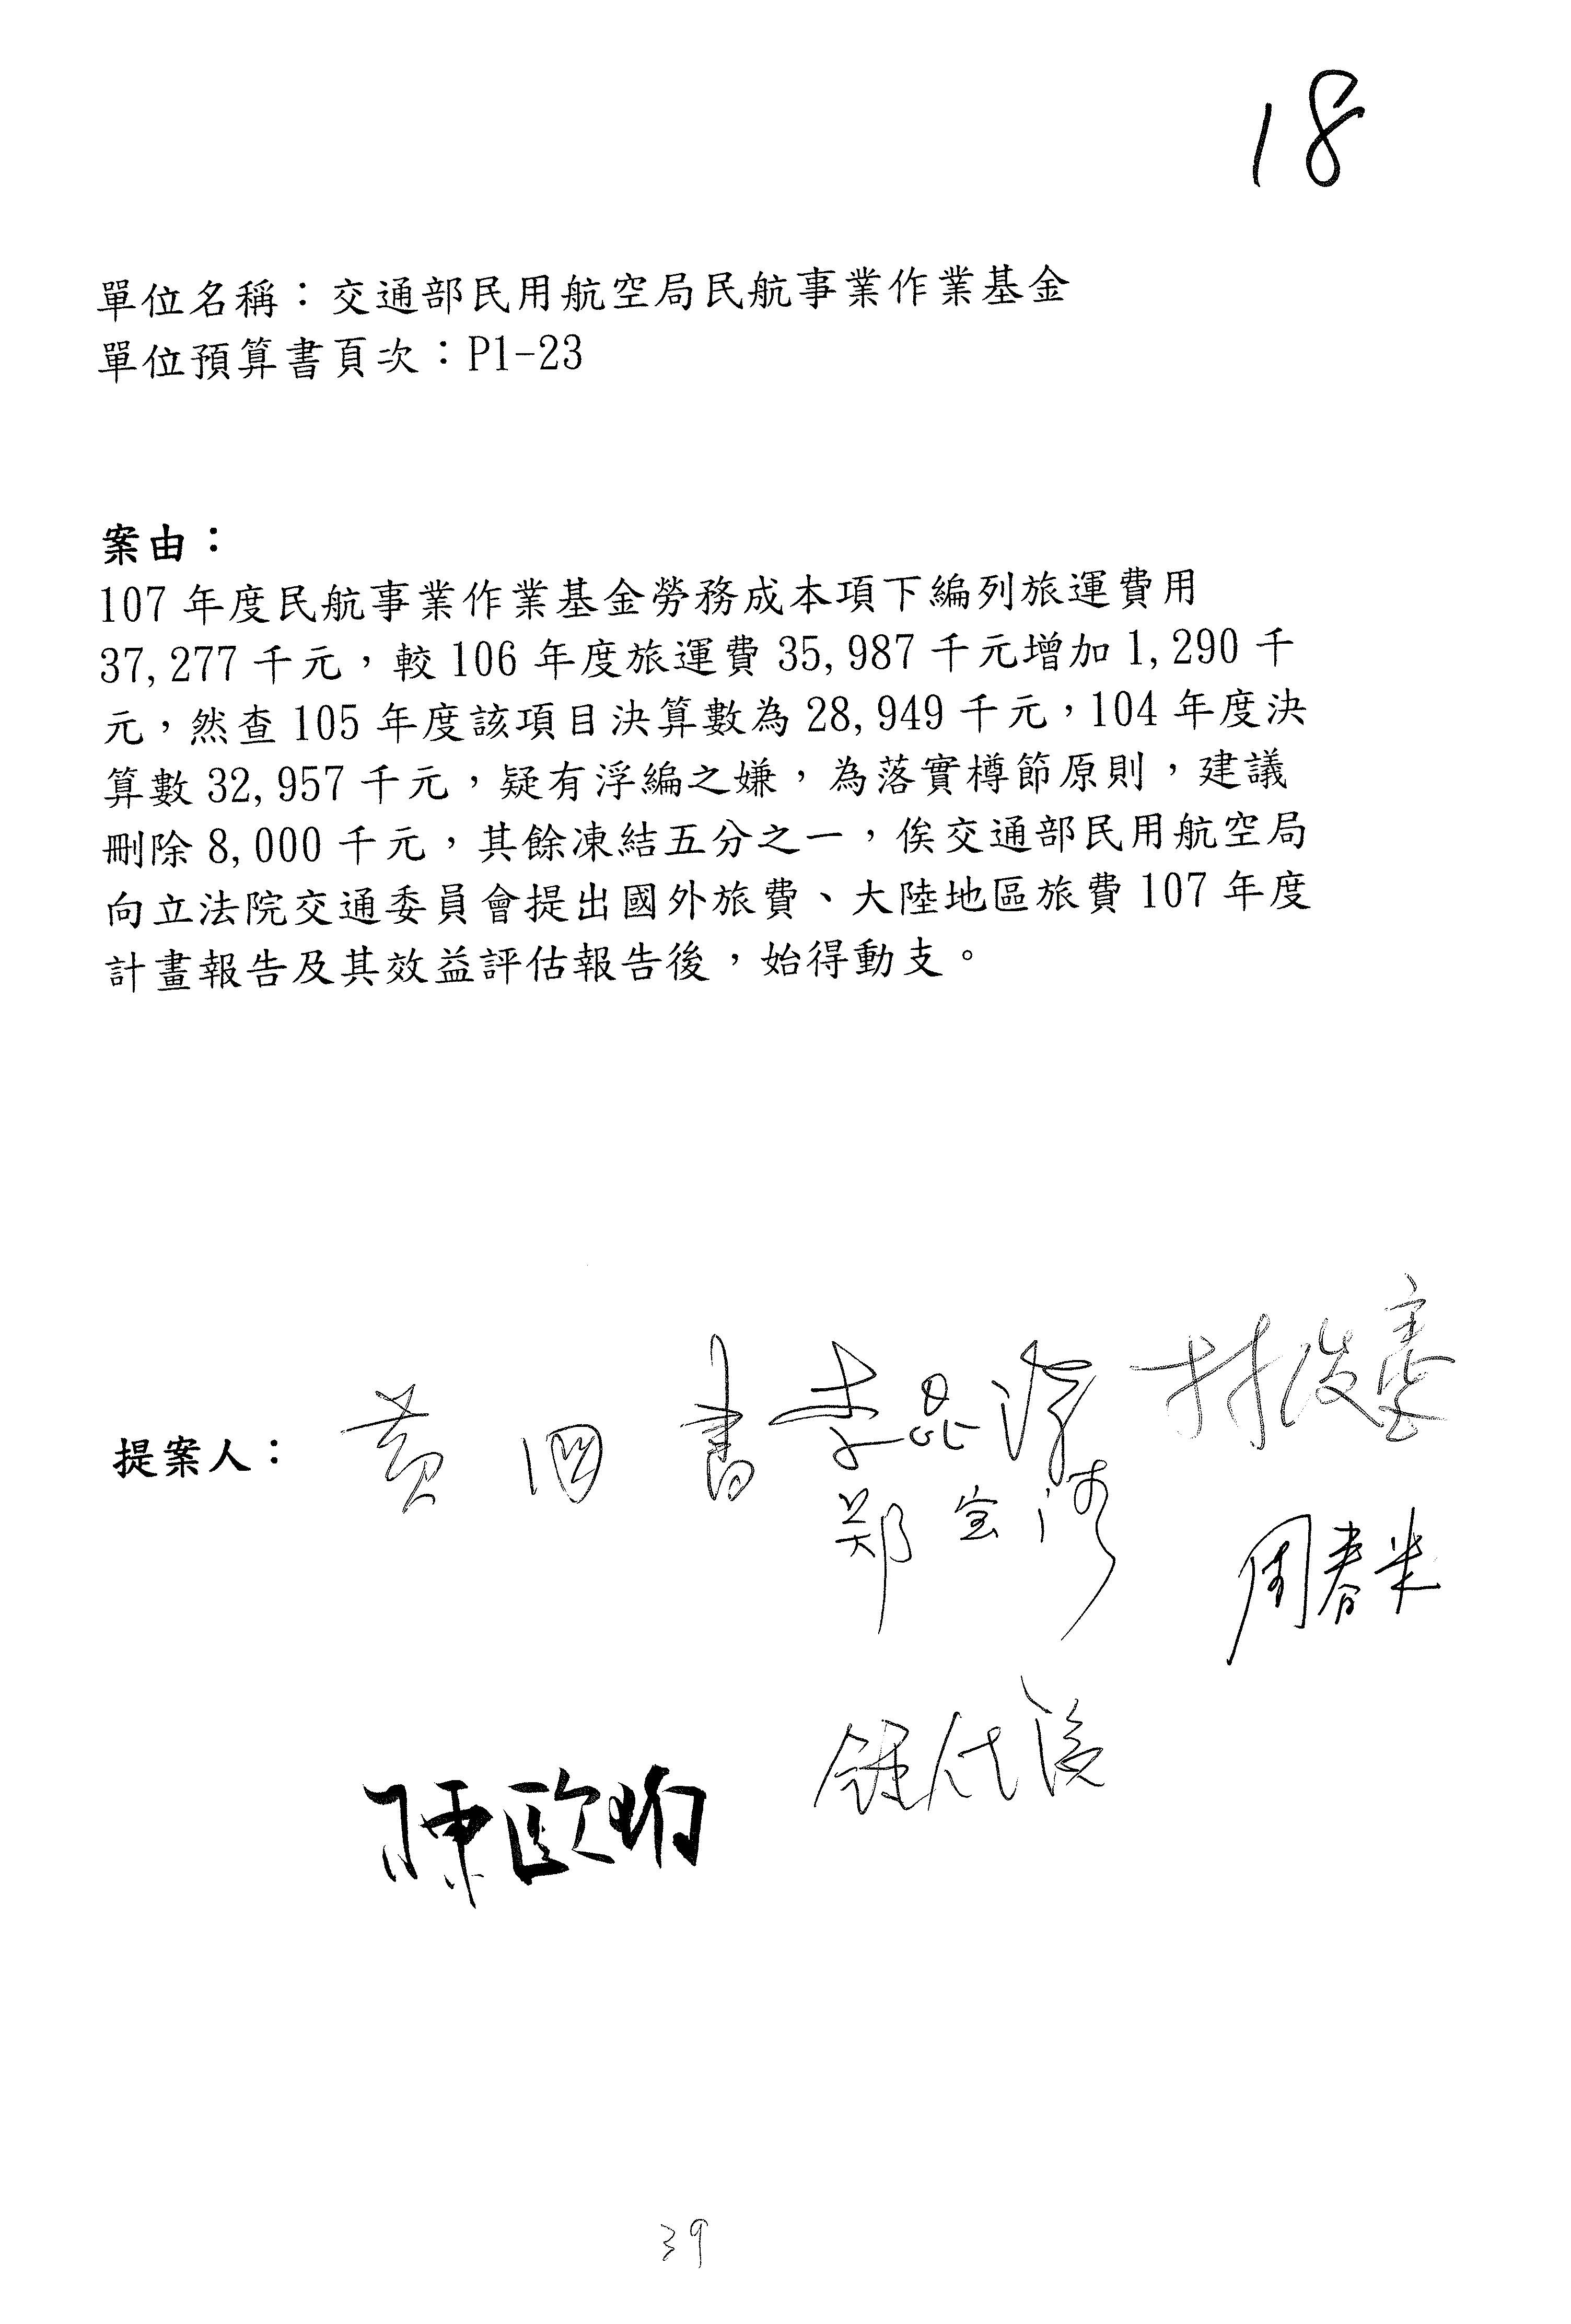 18
單位名稱：交通部民用航空局民航事業作業基金
單位預算書頁次：P1-23
案由：
107 年度民航事業作業基金勞務成本項下編列旅運費用
37,277 千元，較 106 年度旅運費 35,987 千元增加 1,290 千
元，然查 105 年度該項目決算數為 28,949 千元，104 年度決
算數 32,957 千元，疑有浮編之嫌，為落實樽節原則，建議
刪除 8,000 千元，其餘凍結五分之一，俟交通部民用航空局
向立法院交通委員會提出國外旅費、大陸地區旅費 107 年度
計畫報告及其效益評估報告後，始得動支。
提案人：
黃國書 李昆澤 林俊憲
鄭宝清 周春米
陳歐珀
39